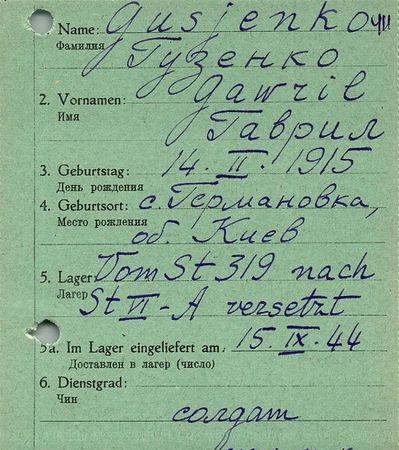 Name: Gusjenko
Фамилия Гузенко
2. Vornamen: Gawril
Имя Гаврил
3. Geburtstag: 14. II. 1915
День рождения
4. Geburtsort: с. Германовка,
Место рождения об. Киев
5. Lager Vom St 319 nach
Лагер St VI-A versetzt
5a. Im Lager eingeliefert am: 15. IX. 44
Доставлен в лагер (число)
6. Dienstgrad:
Чин
солдат